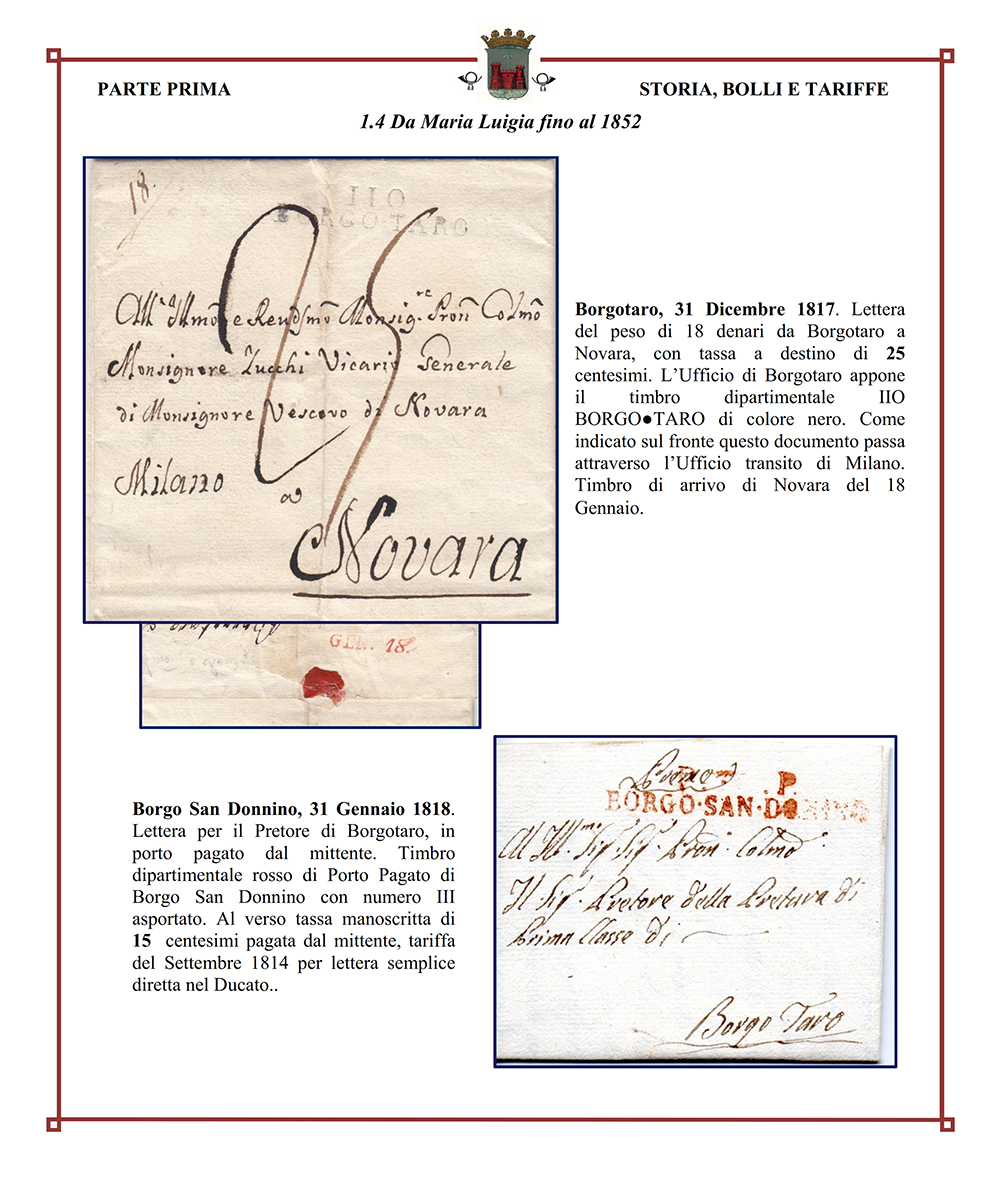 PARTE PRIMA
STORIA, BOLLI E TARIFFE
1.4 Da Maria Luigia fino al 1852
18.
IIO
BORGO TARO
25
All' Illmo e Revdsmo Monsig.re Pron Colmo
Monsignore Zucchi Vicario Generale
di Monsignore Vescovo di Novara
Milano
a
Novara
Borgotaro, 31 Dicembre 1817. Lettera
del peso di 18 denari da Borgotaro a
Novara, con tassa a destino di 25
centesimi. L’Ufficio di Borgotaro appone
il timbro dipartimentale IIO
BORGO●TARO di colore nero. Come
indicato sul fronte questo documento passa
attraverso l’Ufficio transito di Milano.
Timbro di arrivo di Novara del 18
Gennaio.
GEN. 18.
Borgo San Donnino, 31 Gennaio 1818.
Lettera per il Pretore di Borgotaro, in
porto pagato dal mittente. Timbro
dipartimentale rosso di Porto Pagato di
Borgo San Donnino con numero III
asportato. Al verso tassa manoscritta di
15 centesimi pagata dal mittente, tariffa
del Settembre 1814 per lettera semplice
diretta nel Ducato..
P. .P.
BORGO·SAN·DONNINO
Al Ill.mo Sig. Sig. Pron. Colmo
Il Sig. Pretore della Pretura di
Prima Classe di
Borgo Taro